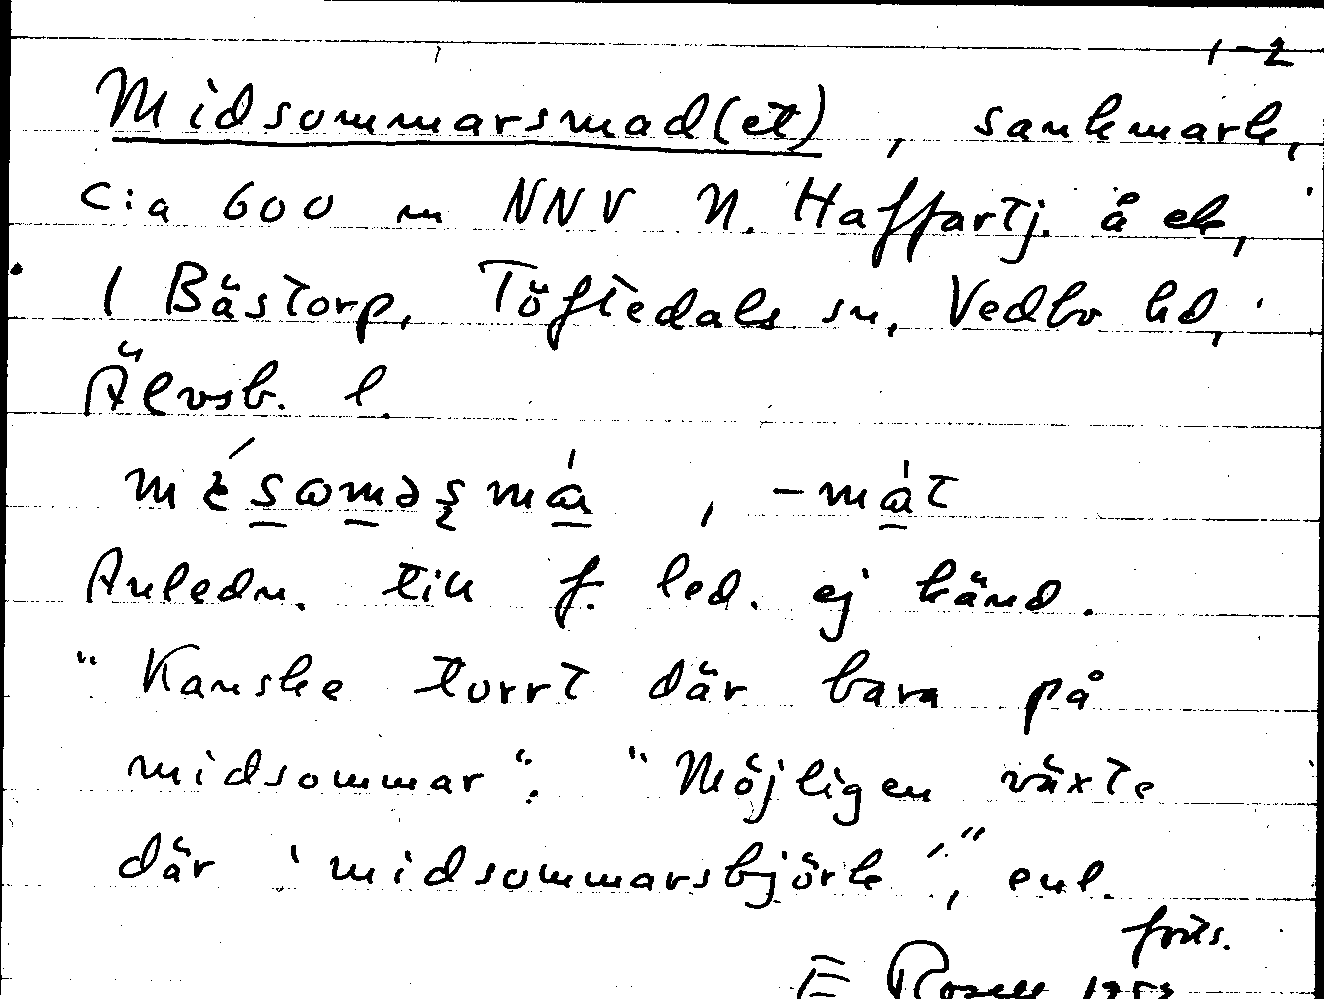 1-2
Midsommarsmad(et), sankmark,
c:a 600 m NNV N. Haffartj. å ek,
1 Bästorp, Töftedals sn, Vedbo hd,
Älvsb. l.
-måt
Anledn. till f. led. ej känd.
"Kanske torrt där bara på
midsommar". "Möjligen växte
där 'midsommarsbjörk'", enl.
forts.
E Rosell